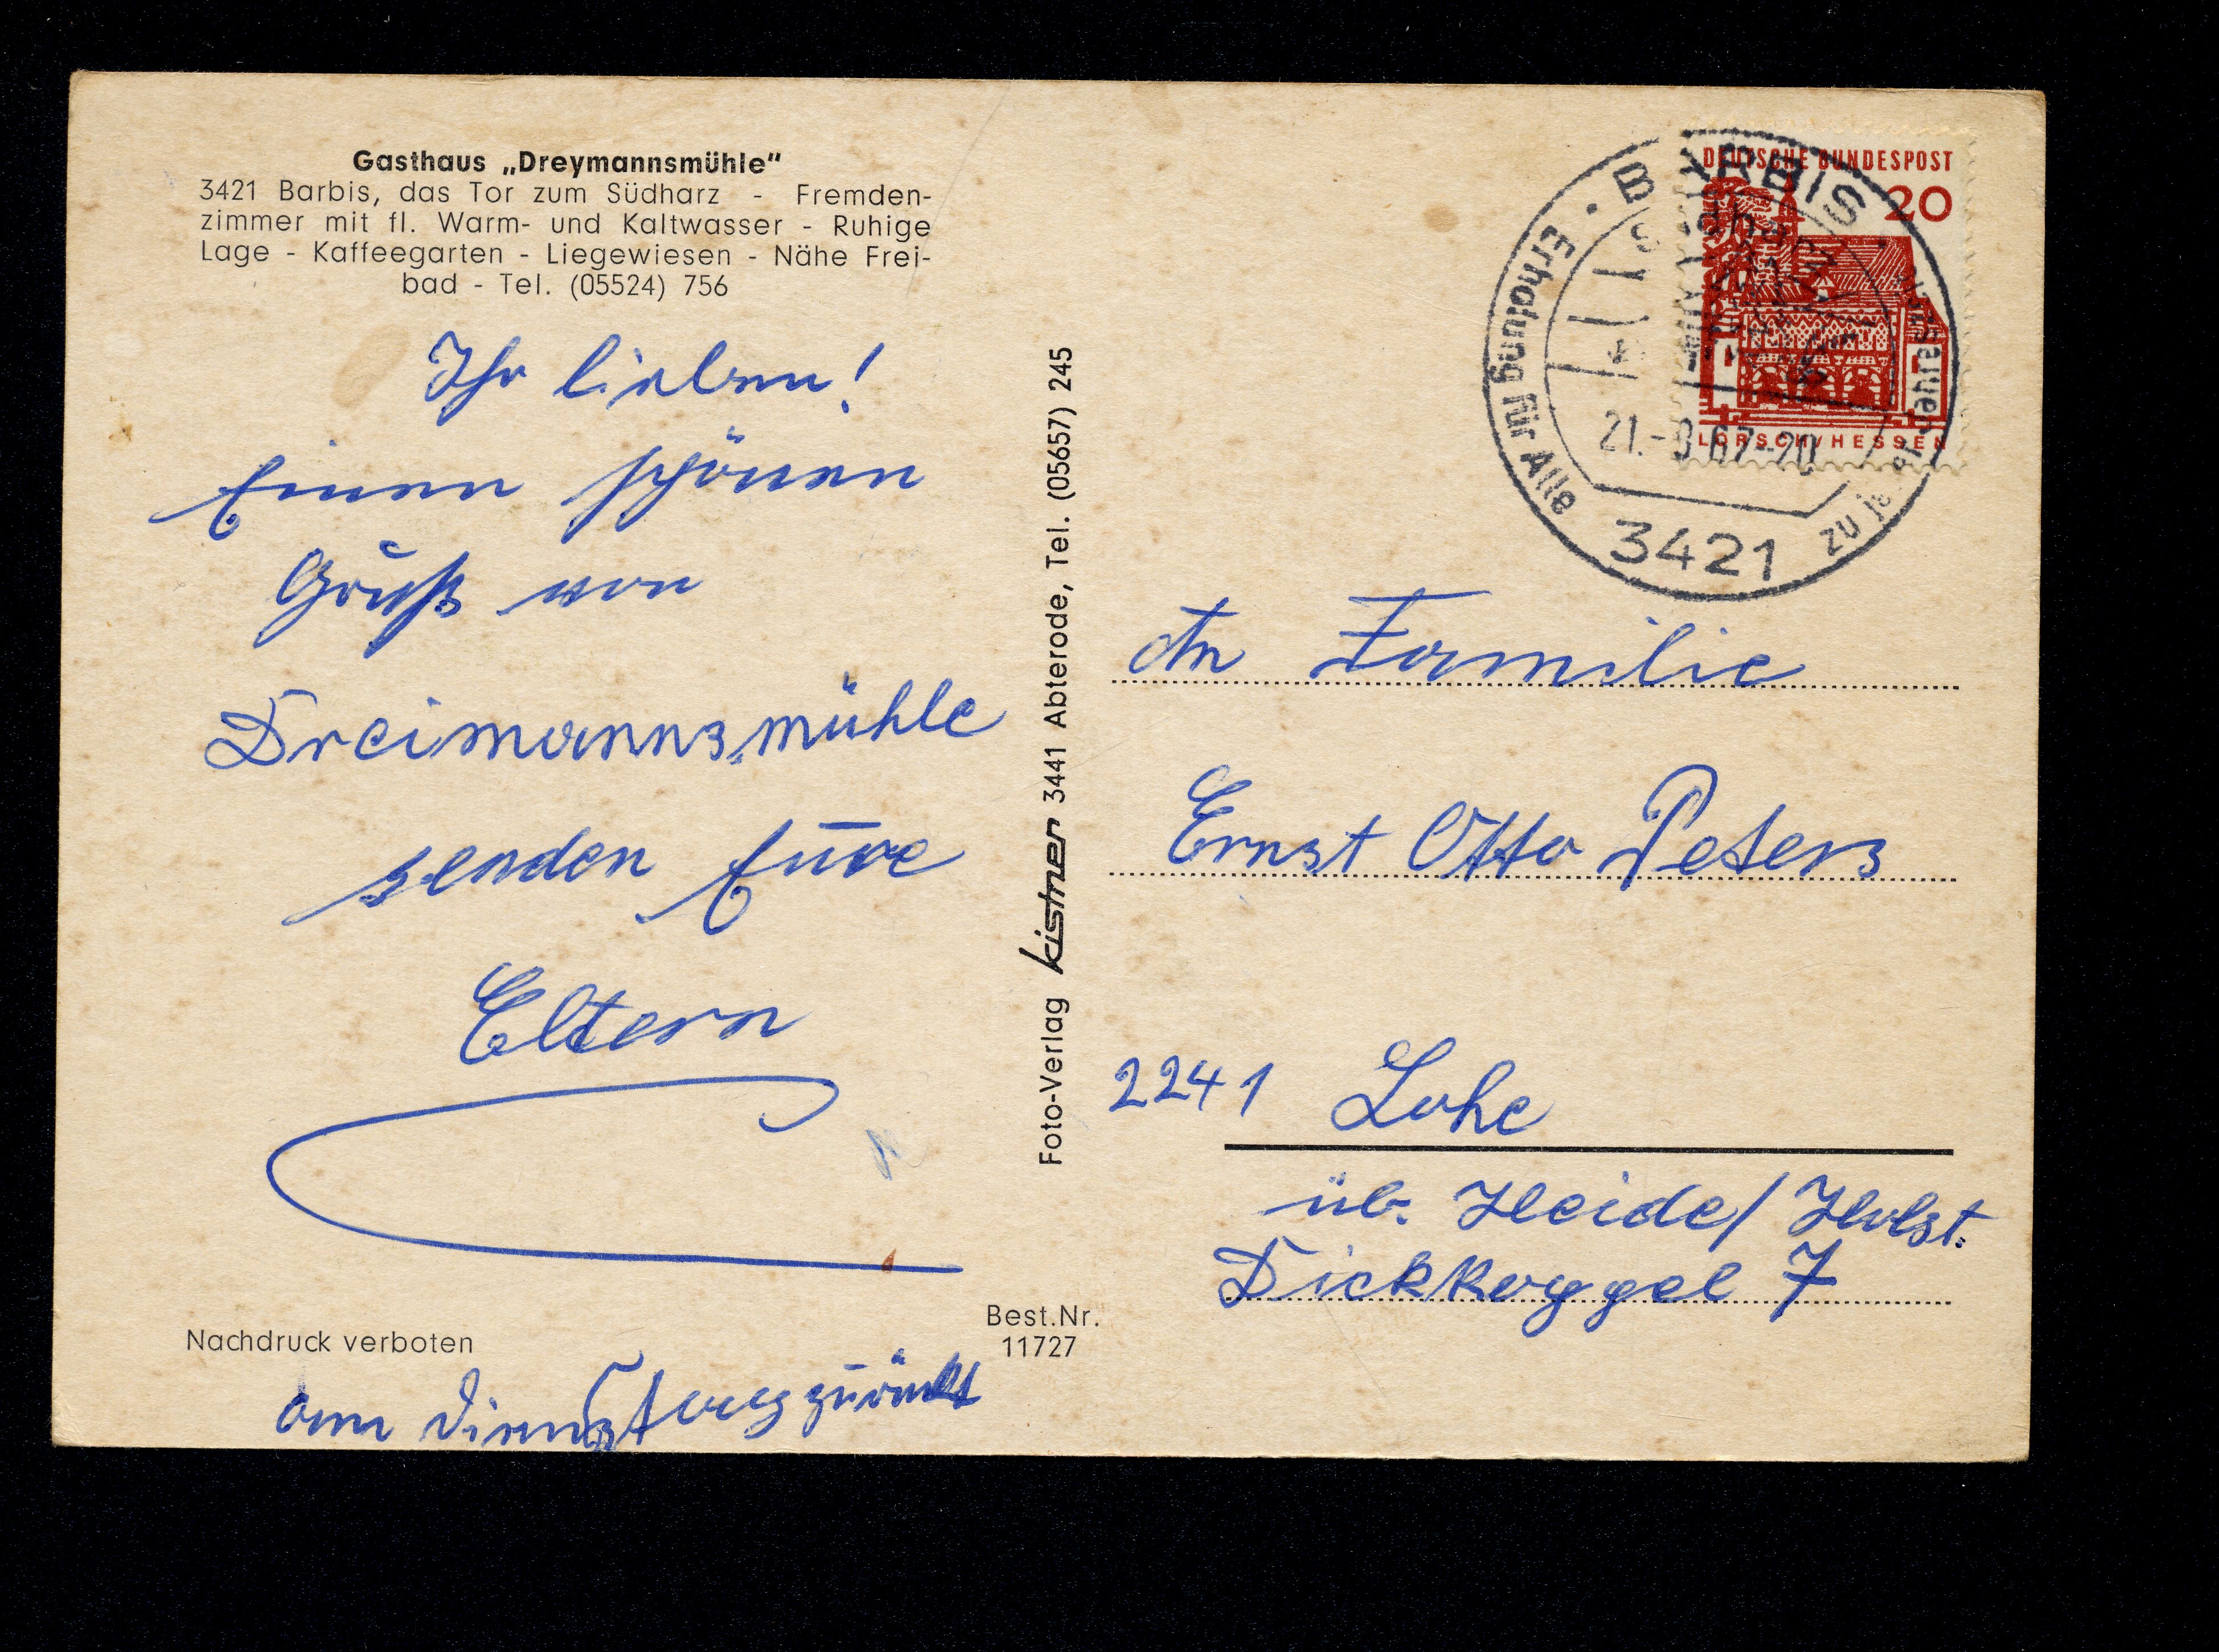 Gasthaus „Dreymannsmühle"
3421 Barbis, das Tor zum Südharz - Fremden-
zimmer mit fl. Warm- und Kaltwasser - Ruhige
Lage - Kaffeegarten - Liegewiesen - Nähe Frei-
bad - Tel. (05524) 756
Ihr lieben!
Einen schönen
Gruß von
Dreimannsmühle
senden Eure
Eltern
Nachdruck verboten
am Dienstag zurück
Best.Nr.
11727
Foto-Verlag kistner 3441 Abterode, Tel. (05657) 245
DEUTSCHE BUNDESPOST
20
LORSCH/HESSEN
BARBIS
Südharz
Erholung für Alle
zu jeder Jahreszeit
21.-9.67-20
3421
An Familie
Ernst Otto Peters
2241 Lohe
üb. Heide/Holst.
Dickkoggel 7